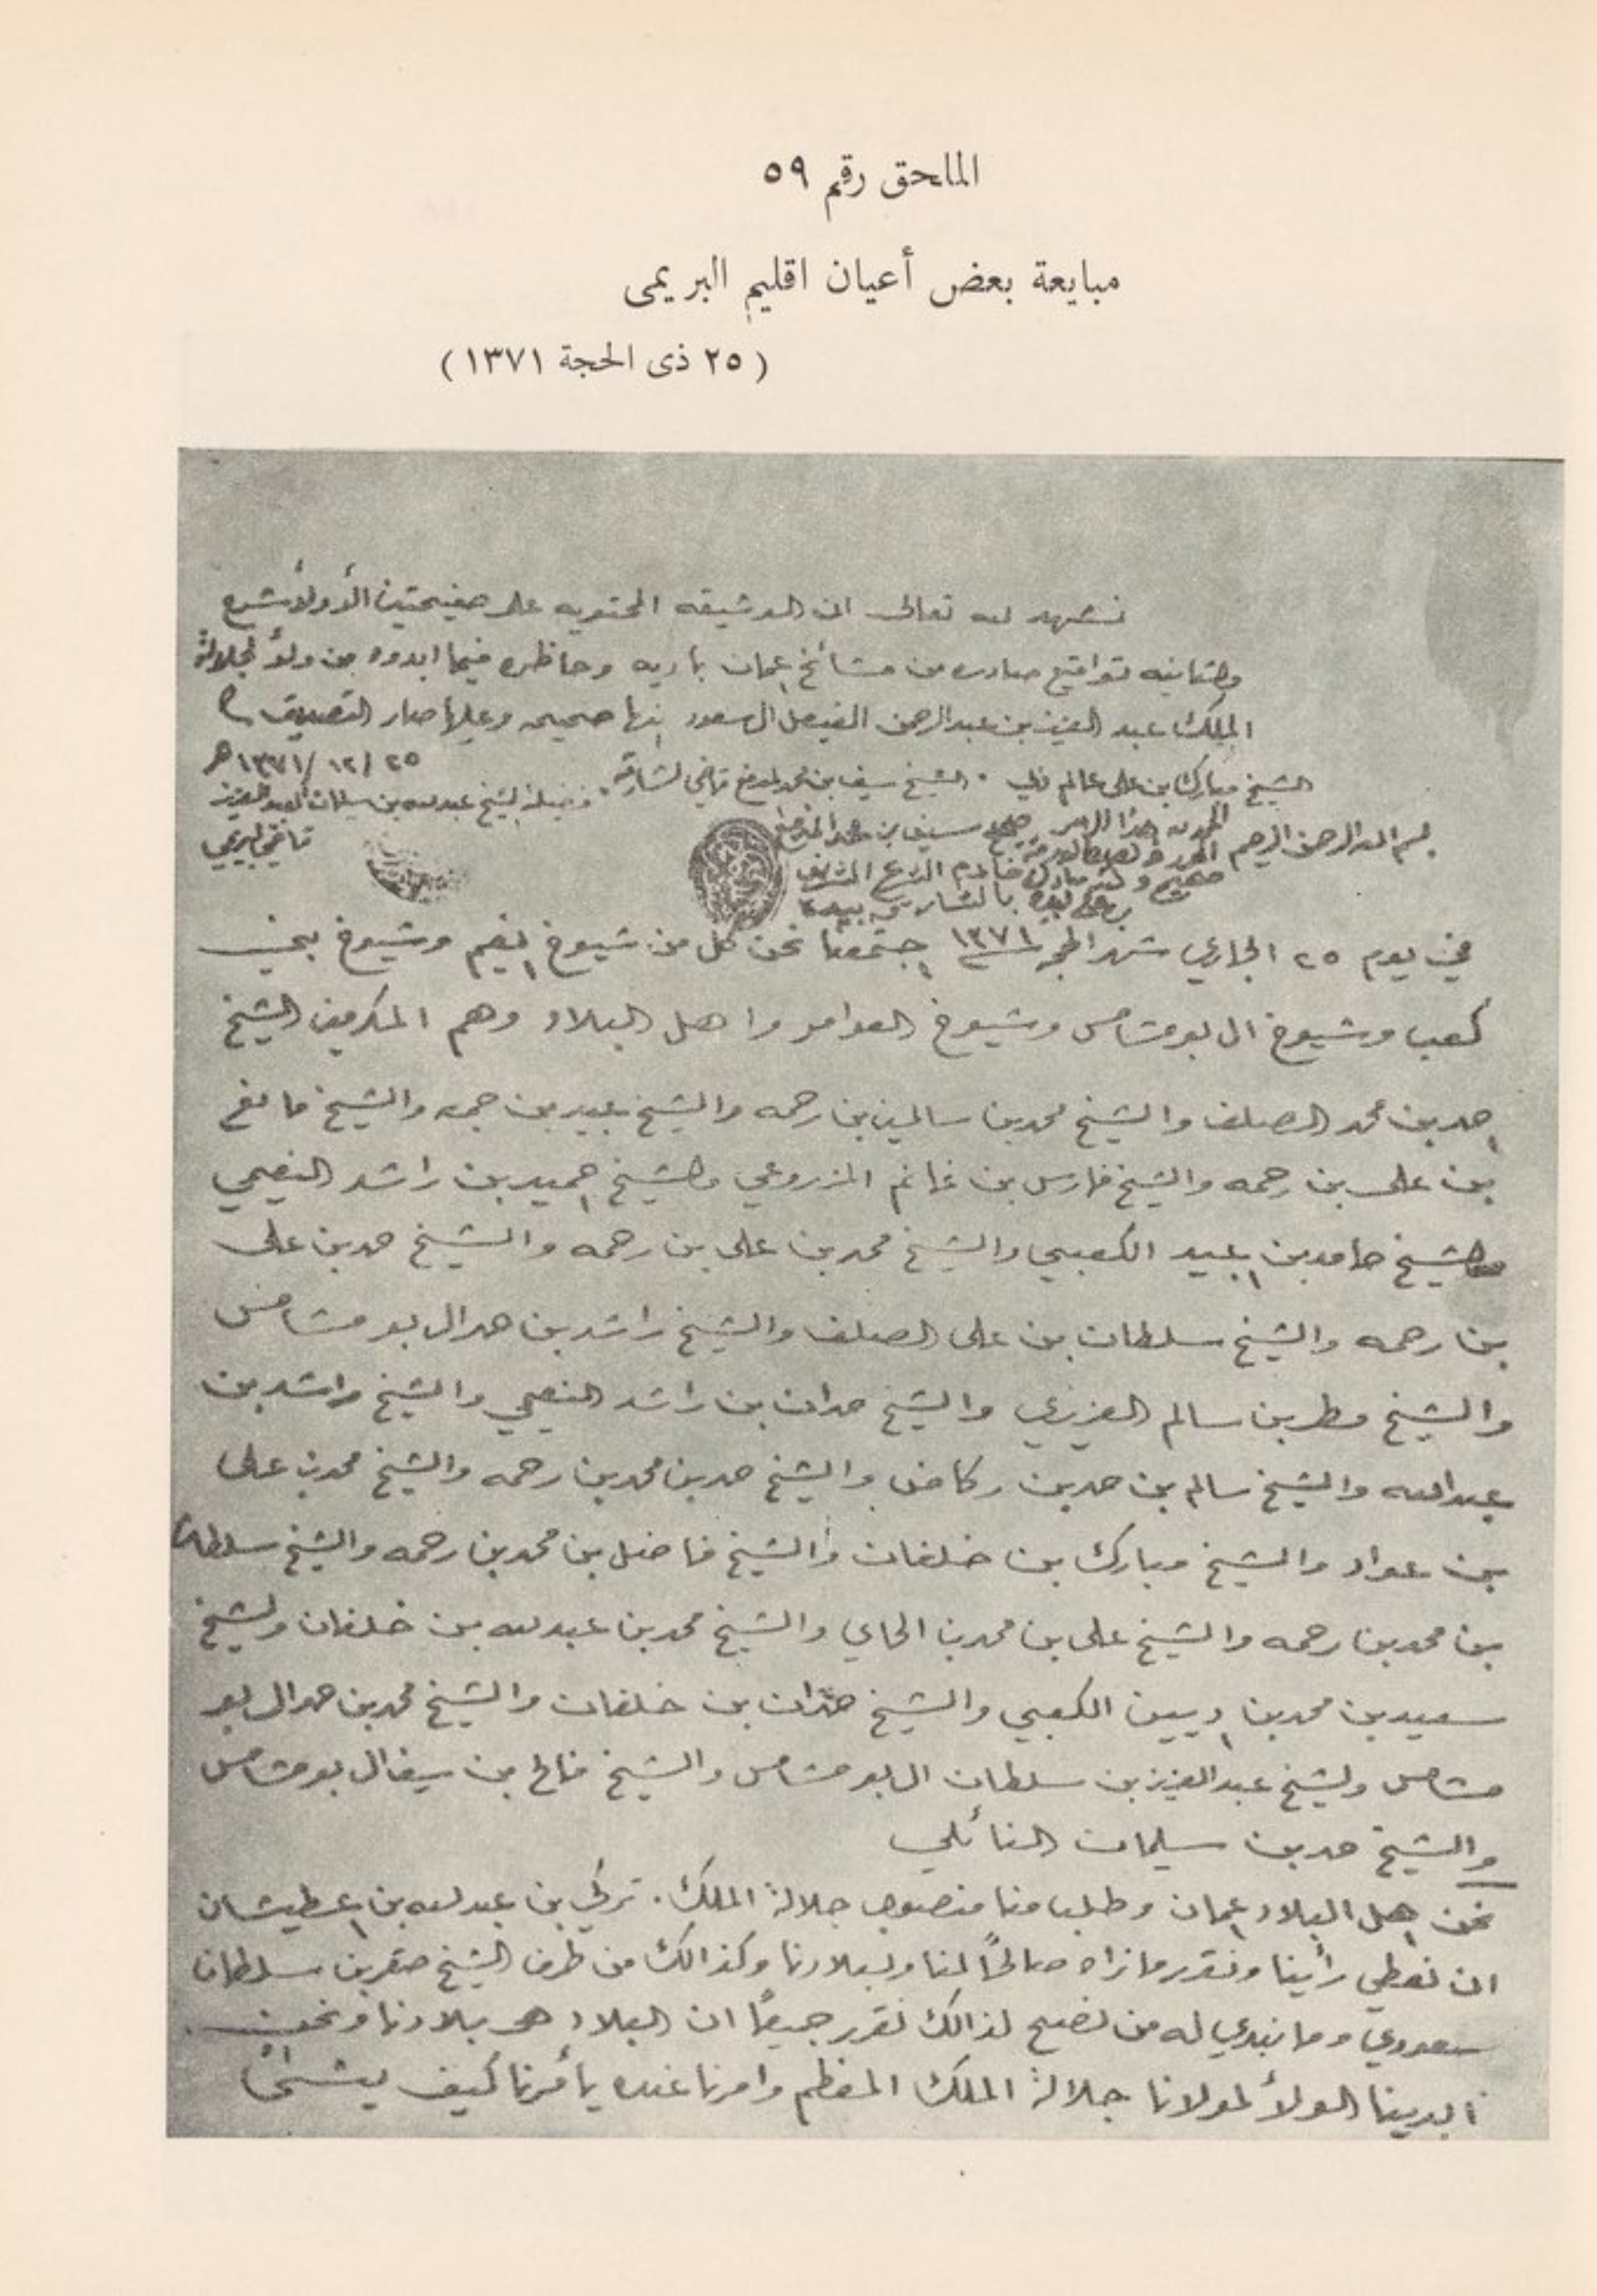 الملحق رقم ٥٩
مبايعة بعض أعيان اقليم البريمى
( ٢٥ ذى الحجة ١٣٧١ )
نشهد لله تعالى ان الوثيقه المحتويه على صفيحتين الأولا شرع
والثانيه تواقيع صادره من مشائخ عمان باديه وحاظره فيما ابدوه من ولأ لجلالة
الملك عبد العزيز بن عبد الرحمن الفيصل ال سعود إنها صحيحه وعليها صار التصديق
٢٥ / ١٢ / ١٣٧١ هـ
الشيخ مبارك بن علي عالم دبي . الشيخ سيف بن محمد المدفع قاضي الشارقه . فضيلة الشيخ عبد الله بن سليمان العبد العزيز
قاضي البريمي
بسم الله الرحمن الرحيم الحمد لله هذا الامر صحيح سيف بن محمد المدفع
صحيح وكتبه مبارك خادم الشرع الشريف
بن علي بيده بالشارقه بيده
في يوم ٢٥ الجاري شهر الحجه ١٣٧١ إجتمعنا نحن كل من شيوخ إنعيم وشيوخ بني
كعب وشيوخ ال بو شامس وشيوخ العوامر واهل البلاد وهم المكرمين الشيخ
إحمد بن محمد الصلف والشيخ محمد بن سالمين بن رحمه والشيخ عبيد بن جمعه والشيخ مانع
بن علي بن رحمه والشيخ فارس بن غانم المزروعي والشيخ إحميد بن راشد النعيمي
والشيخ حامد بن إعبيد الكعبي والشيخ محمد بن علي بن رحمه والشيخ حمد بن علي
بن رحمه والشيخ سلطان بن علي الصلف والشيخ راشد بن حمد ال بو شامس
والشيخ مطر بن سالم العزيزي والشيخ حمدان بن راشد النعيمي والشيخ راشد بن
عبدالله والشيخ سالم بن حمد بن ركاض والشيخ حمد بن محمد بن رحمه والشيخ محمد بن علي
بن عواد والشيخ مبارك بن خلفان والشيخ فاضل بن محمد بن رحمه والشيخ سلطان
بن محمد بن رحمه والشيخ علي بن محمد بن الحاي والشيخ محمد بن عبد الله بن خلفان والشيخ
سعيد بن محمد بن إديين الكعبي والشيخ حمدان بن خلفان والشيخ محمد بن حمد ال بو
شامس والشيخ عبد العزيز بن سلطان ال بو شامس والشيخ فالح بن سيف ال بو شامس
والشيخ حمد بن سليمان النائلي
نحن إهل البلاد إعمان وطلب منا منصوب جلالة الملك . تركي بن عبد الله بن إعطيشان
ان نعطي رأينا ونقرر ما نراه صالحاً لنا ولبلادنا وكذالك من طرف الشيخ صقر بن سلطان
سعودي وما نبدي له من نصح لذالك نقرر جميعاً ان البلاد هي بلادنا ونحن
أبدينا الولأ لمولانا جلالة الملك المعظم وامرنا عنده يأمرنا كيف يشأ